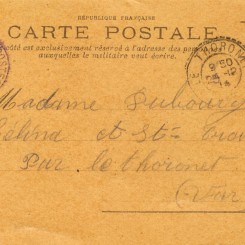 RÉPUBLIQUE FRANÇAISE
CARTE POSTALE
est exclusivement réservé à l'adresse des pers
auxquelles le militaire veut écrire.
THORON
Madame Dubourg
et Ste
Par le thoronet
(Var